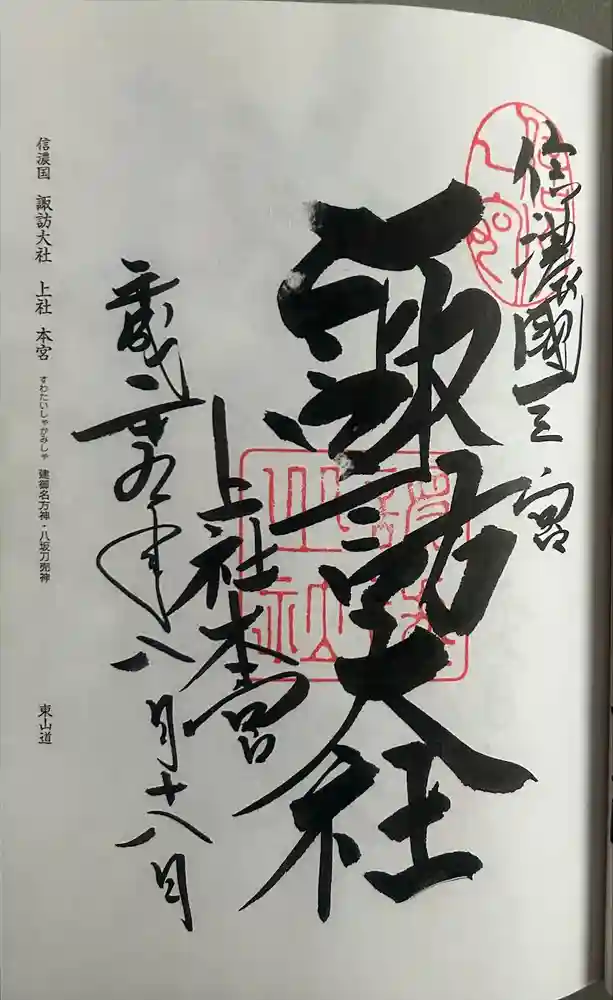 信濃國一之宮
諏訪大社
上社本宮
平成二十九年八月十八日
信濃国 諏訪大社 上社 本宮 すわたいしゃかみしゃ 建御名方神・八坂刀売神 東山道